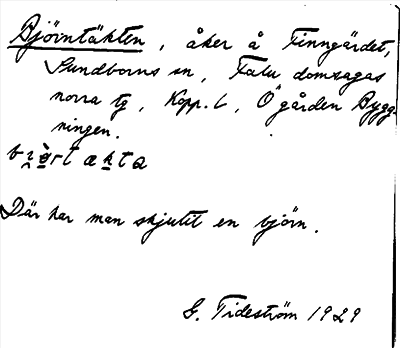 Björntäkten, åker å Finngärdet,
Sundborns sn, Falu domsagas
norra tg, Kopp. l, Ögården Bygg-
ningen.
Där har man skjutit en björn.
G. Tideström 1929